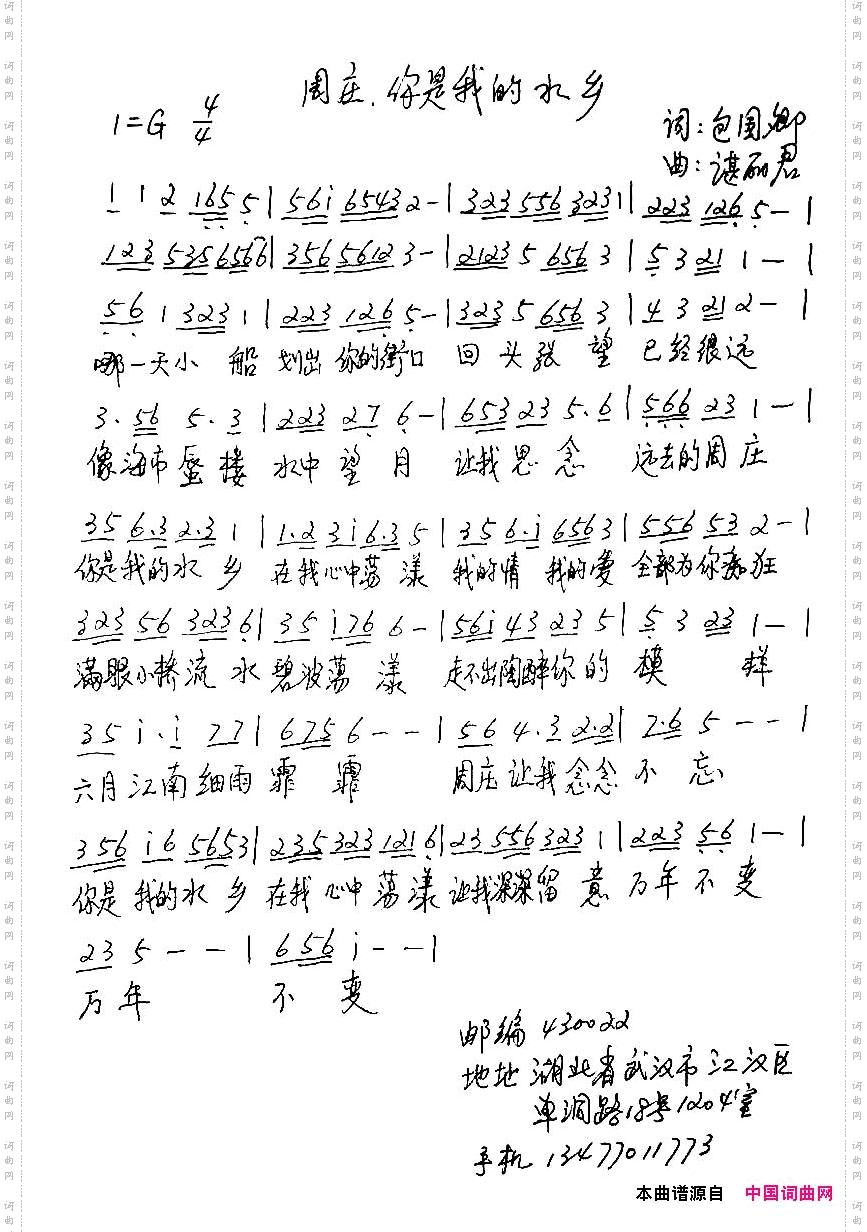 周庄.你是我的水乡
1=G 4/4
词:包国卿
曲:谌丽君
1 1 2 165 5 | 56i 6543 2 - | 323 556 323 1 | 223 126 5 - |
123 5356 56 | 356 5612 3 - | 2123 5 656 3 | 5 3 21 1 - |
56 1 323 1 | 223 126 5 - | 323 5 656 3 | 4 3 21 2 - |
哪一天小 船 划出 你的街口 回 头张 望 已经很远
3. 56 5. 3 | 223 27 6 - | 653 23 5. 6 | 566 23 1 - |
像海市蜃楼 水中望月 让我思念 远去的周庄
35 6.3 2.3 1 | 1.2 3i 6.3 5 | 35 6.i 656 3 | 556 53 2 - |
你是我的水 乡 在我心中荡 漾 我的情 我的爱 全部为你痴狂
323 56 323 6 | 35 i76 6 - | 56i 43 23 5 | 5 3 23 1 - |
满眼小桥流 水 碧波荡 漾 走不出陶醉你的 模 样
35 i. i 77 | 675 6 - - | 56 4.3 2.2 | 7.6 5 - - |
六月江南细雨 霏 霏 周庄让我念念 不 忘
356 i6 5653 | 235 323 121 6 | 23 556 323 1 | 223 56 1 - |
你是 我的水 乡 在我 心中 荡漾 让我深深留 意 万年 不 变
23 5 - - | 656 i - - |
万年 不 变
邮编 430022
地址 湖北省武汉市江汉区
单洞路18号1204室
手机 13477011773
本曲谱源自 中国词曲网
词曲网